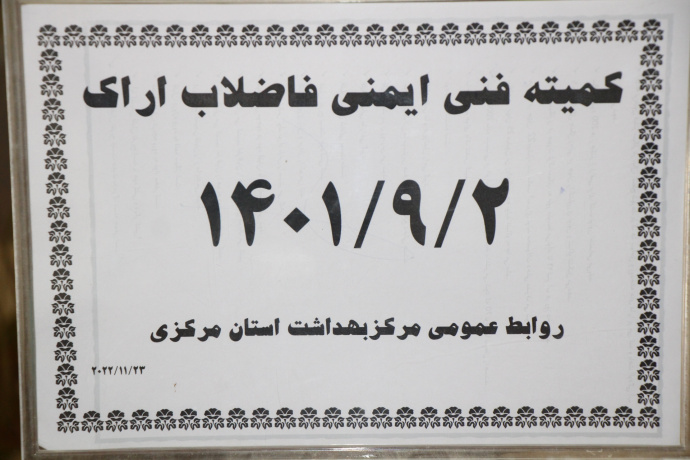 کمیته فنی ایمنی فاضلاب اراک
۱۴۰۱/۹/۲
روابط عمومی مرکزبهداشت استان مرکزی
۲۰۲۲/۱۱/۲۳